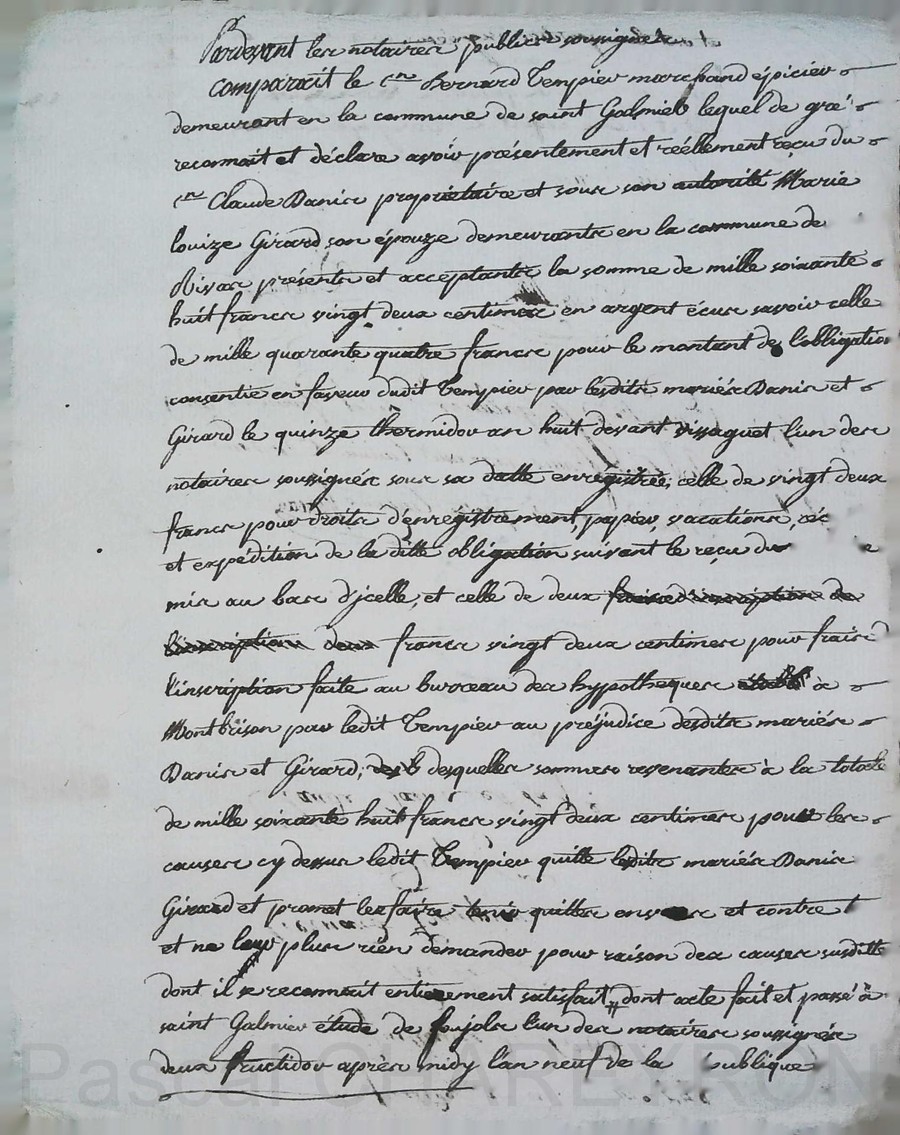 Pardevant les notaires publics soussignés
comparait le cen Bernard Tempier marchand épicier
demeurant en la commune de saint Galmier lequel de gré
reconnait et déclare avoir présentement et réellement reçu du
cen Claude Danis propriétaire et sous son autorité Marie
louize Girard son épouze demeurants en la commune de
Rivas présents et acceptants la somme de mille soixante
huit francs vingt deux centimes en argent écus savoir celle
de mille quarante quatre francs pour le montant de l'obligation
consentie en faveur dudit Tempier par lesdits mariés Danis et
Girard le quinze thermidor an huit devant l'un des
notaires soussignés sous sa datte enregistrée; celle de vingt deux
francs pour droits d'enregistrement, papier, vacations,
et expédition de la ditte obligation suivant le reçu
mis au bas d'jcelle, et celle de deux frais d'inscription de
l'inscription deux francs vingt deux centimes pour frais
l'inscription faite au bureau des hypotheques à
Montbrison par ledit Tempier au préjudice desdits mariés
Danis et Girard; desquelles sommes revenantes à la totale
de mille soixante huit francs vingt deux centimes pour les
causes cy dessus ledit Tempier quitte lesdits mariés Danis
Girard et promet les faire tenir quittes envers et contre
et ne leur plus rien demander pour raison des causes susdittes
dont il se reconnait entierement satisfait, dont acte fait et passé à
saint Galmier étude de foujols l'un des notaires soussignés
deux fructidor après midy l'an neuf de la publique
Pascal CHAREYRON